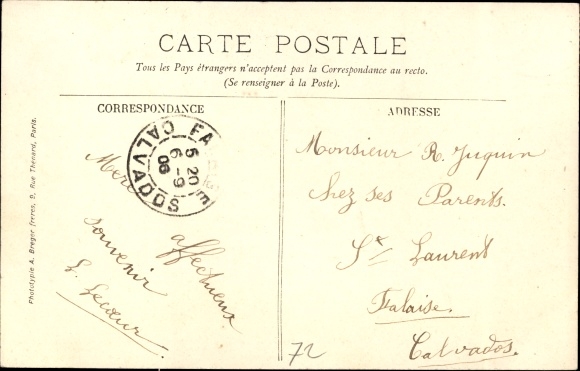 CARTE POSTALE
Tous les Pays étrangers n'acceptent pas la Correspondance au recto.
(Se renseigner à la Poste).
CORRESPONDANCE
FA
CALVADOS
5 20
6 - 9
06
affectueux
souvenir
L. Lecœur.
Phototypie A. Breger frères, 9, Rue Thénard, Paris.
ADRESSE
Monsieur R. Juquin
chez ses Parents.
St Laurent
Falaise.
Calvados.
72